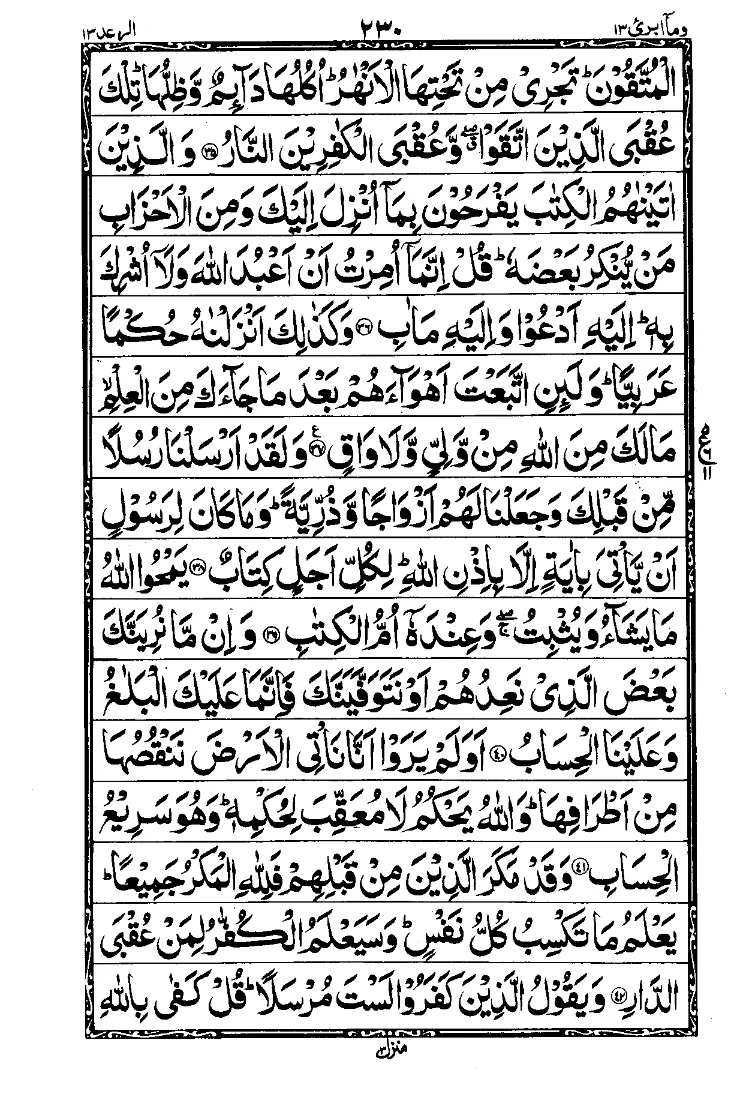 وما ابرئ ١٣ ٢٣٠ الرعد ١٣
الْمُتَّقُوْنَ ؕ تَجْرِیْ مِنْ تَحْتِهَا الْاَنْهٰرُ ؕ اُكُلُهَا دَآىِٕمٌ وَّظِلُّهَا ؕ تِلْكَ
عُقْبَى الَّذِیْنَ اتَّقَوْا ۖۗ وَّعُقْبَى الْكٰفِرِیْنَ النَّارُ ﴿٣٥﴾ وَالَّذِیْنَ
اٰتَیْنٰهُمُ الْكِتٰبَ یَفْرَحُوْنَ بِمَاۤ اُنْزِلَ اِلَیْكَ وَمِنَ الْاَحْزَابِ
مَنْ یُّنْكِرُ بَعْضَهٗ ؕ قُلْ اِنَّمَاۤ اُمِرْتُ اَنْ اَعْبُدَ اللّٰهَ وَلَاۤ اُشْرِكَ
بِهٖ ؕ اِلَیْهِ اَدْعُوْا وَاِلَیْهِ مَاٰبِ ﴿٣٦﴾ وَكَذٰلِكَ اَنْزَلْنٰهُ حُكْمًا
عَرَبِیًّا ؕ وَلَىِٕنِ اتَّبَعْتَ اَهْوَآءَهُمْ بَعْدَ مَا جَآءَكَ مِنَ الْعِلْمِ ۙ
مَا لَكَ مِنَ اللّٰهِ مِنْ وَّلِیٍّ وَّلَا وَاقٍ ﴿٣٧﴾ ع وَلَقَدْ اَرْسَلْنَا رُسُلًا
مِّنْ قَبْلِكَ وَجَعَلْنَا لَهُمْ اَزْوَاجًا وَّذُرِّیَّةً ؕ وَمَا كَانَ لِرَسُوْلٍ
اَنْ یَّاْتِیَ بِاٰیَةٍ اِلَّا بِاِذْنِ اللّٰهِ ؕ لِكُلِّ اَجَلٍ كِتَابٌ ﴿٣٨﴾ یَمْحُوا اللّٰهُ
مَا یَشَآءُ وَیُثْبِتُ ۖۚ وَعِنْدَهٗۤ اُمُّ الْكِتٰبِ ﴿٣٩﴾ وَاِنْ مَّا نُرِیَنَّكَ
بَعْضَ الَّذِیْ نَعِدُهُمْ اَوْ نَتَوَفَّیَنَّكَ فَاِنَّمَا عَلَیْكَ الْبَلٰغُ
وَعَلَیْنَا الْحِسَابُ ﴿٤٠﴾ اَوَلَمْ یَرَوْا اَنَّا نَاْتِی الْاَرْضَ نَنْقُصُهَا
مِنْ اَطْرَافِهَا ؕ وَاللّٰهُ یَحْكُمُ لَا مُعَقِّبَ لِحُكْمِهٖ ؕ وَهُوَ سَرِیْعُ
الْحِسَابِ ﴿٤١﴾ وَقَدْ مَكَرَ الَّذِیْنَ مِنْ قَبْلِهِمْ فَلِلّٰهِ الْمَكْرُ جَمِیْعًا ؕ
یَعْلَمُ مَا تَكْسِبُ كُلُّ نَفْسٍ ؕ وَسَیَعْلَمُ الْكُفّٰرُ لِمَنْ عُقْبَى
الدَّارِ ﴿٤٢﴾ وَیَقُوْلُ الَّذِیْنَ كَفَرُوْا لَسْتَ مُرْسَلًا ؕ قُلْ كَفٰى بِاللّٰهِ
منزل ٣